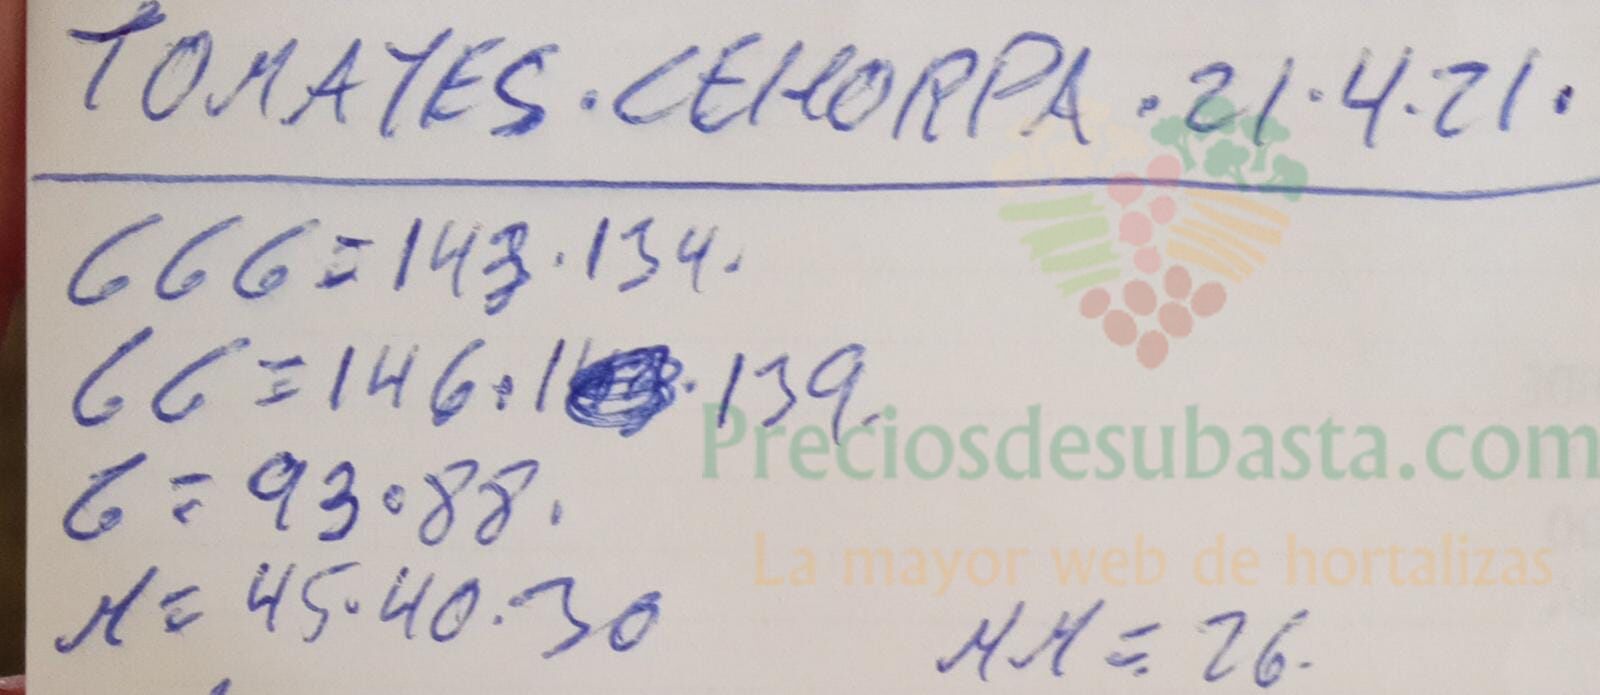 TOMATES.CEHORPA.21.4.21.
GGG=143.134.
GG=146.1 .139.
G=93.88.
M=45.40.30
MM=26.
Preciosdesubasta.com
La mayor web de hortalizas